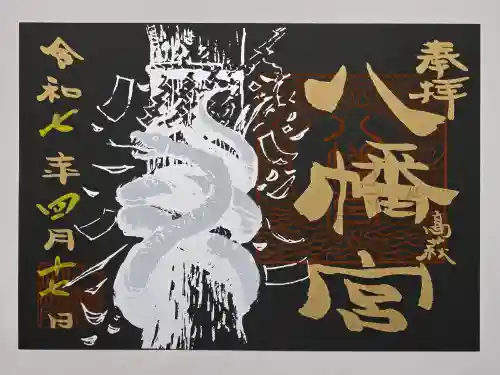 奉拝
高萩
八幡宮
令和七年四月十七日